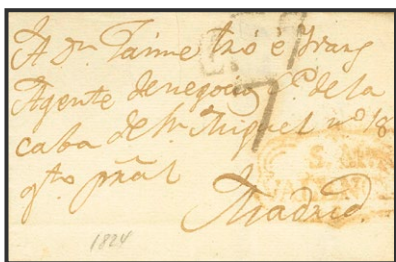 A Dn. Jaime
Agente de negocios Ce. de la
caba de Sn. Miguel no. 18
qto. pral.
Madrid.
7
1824